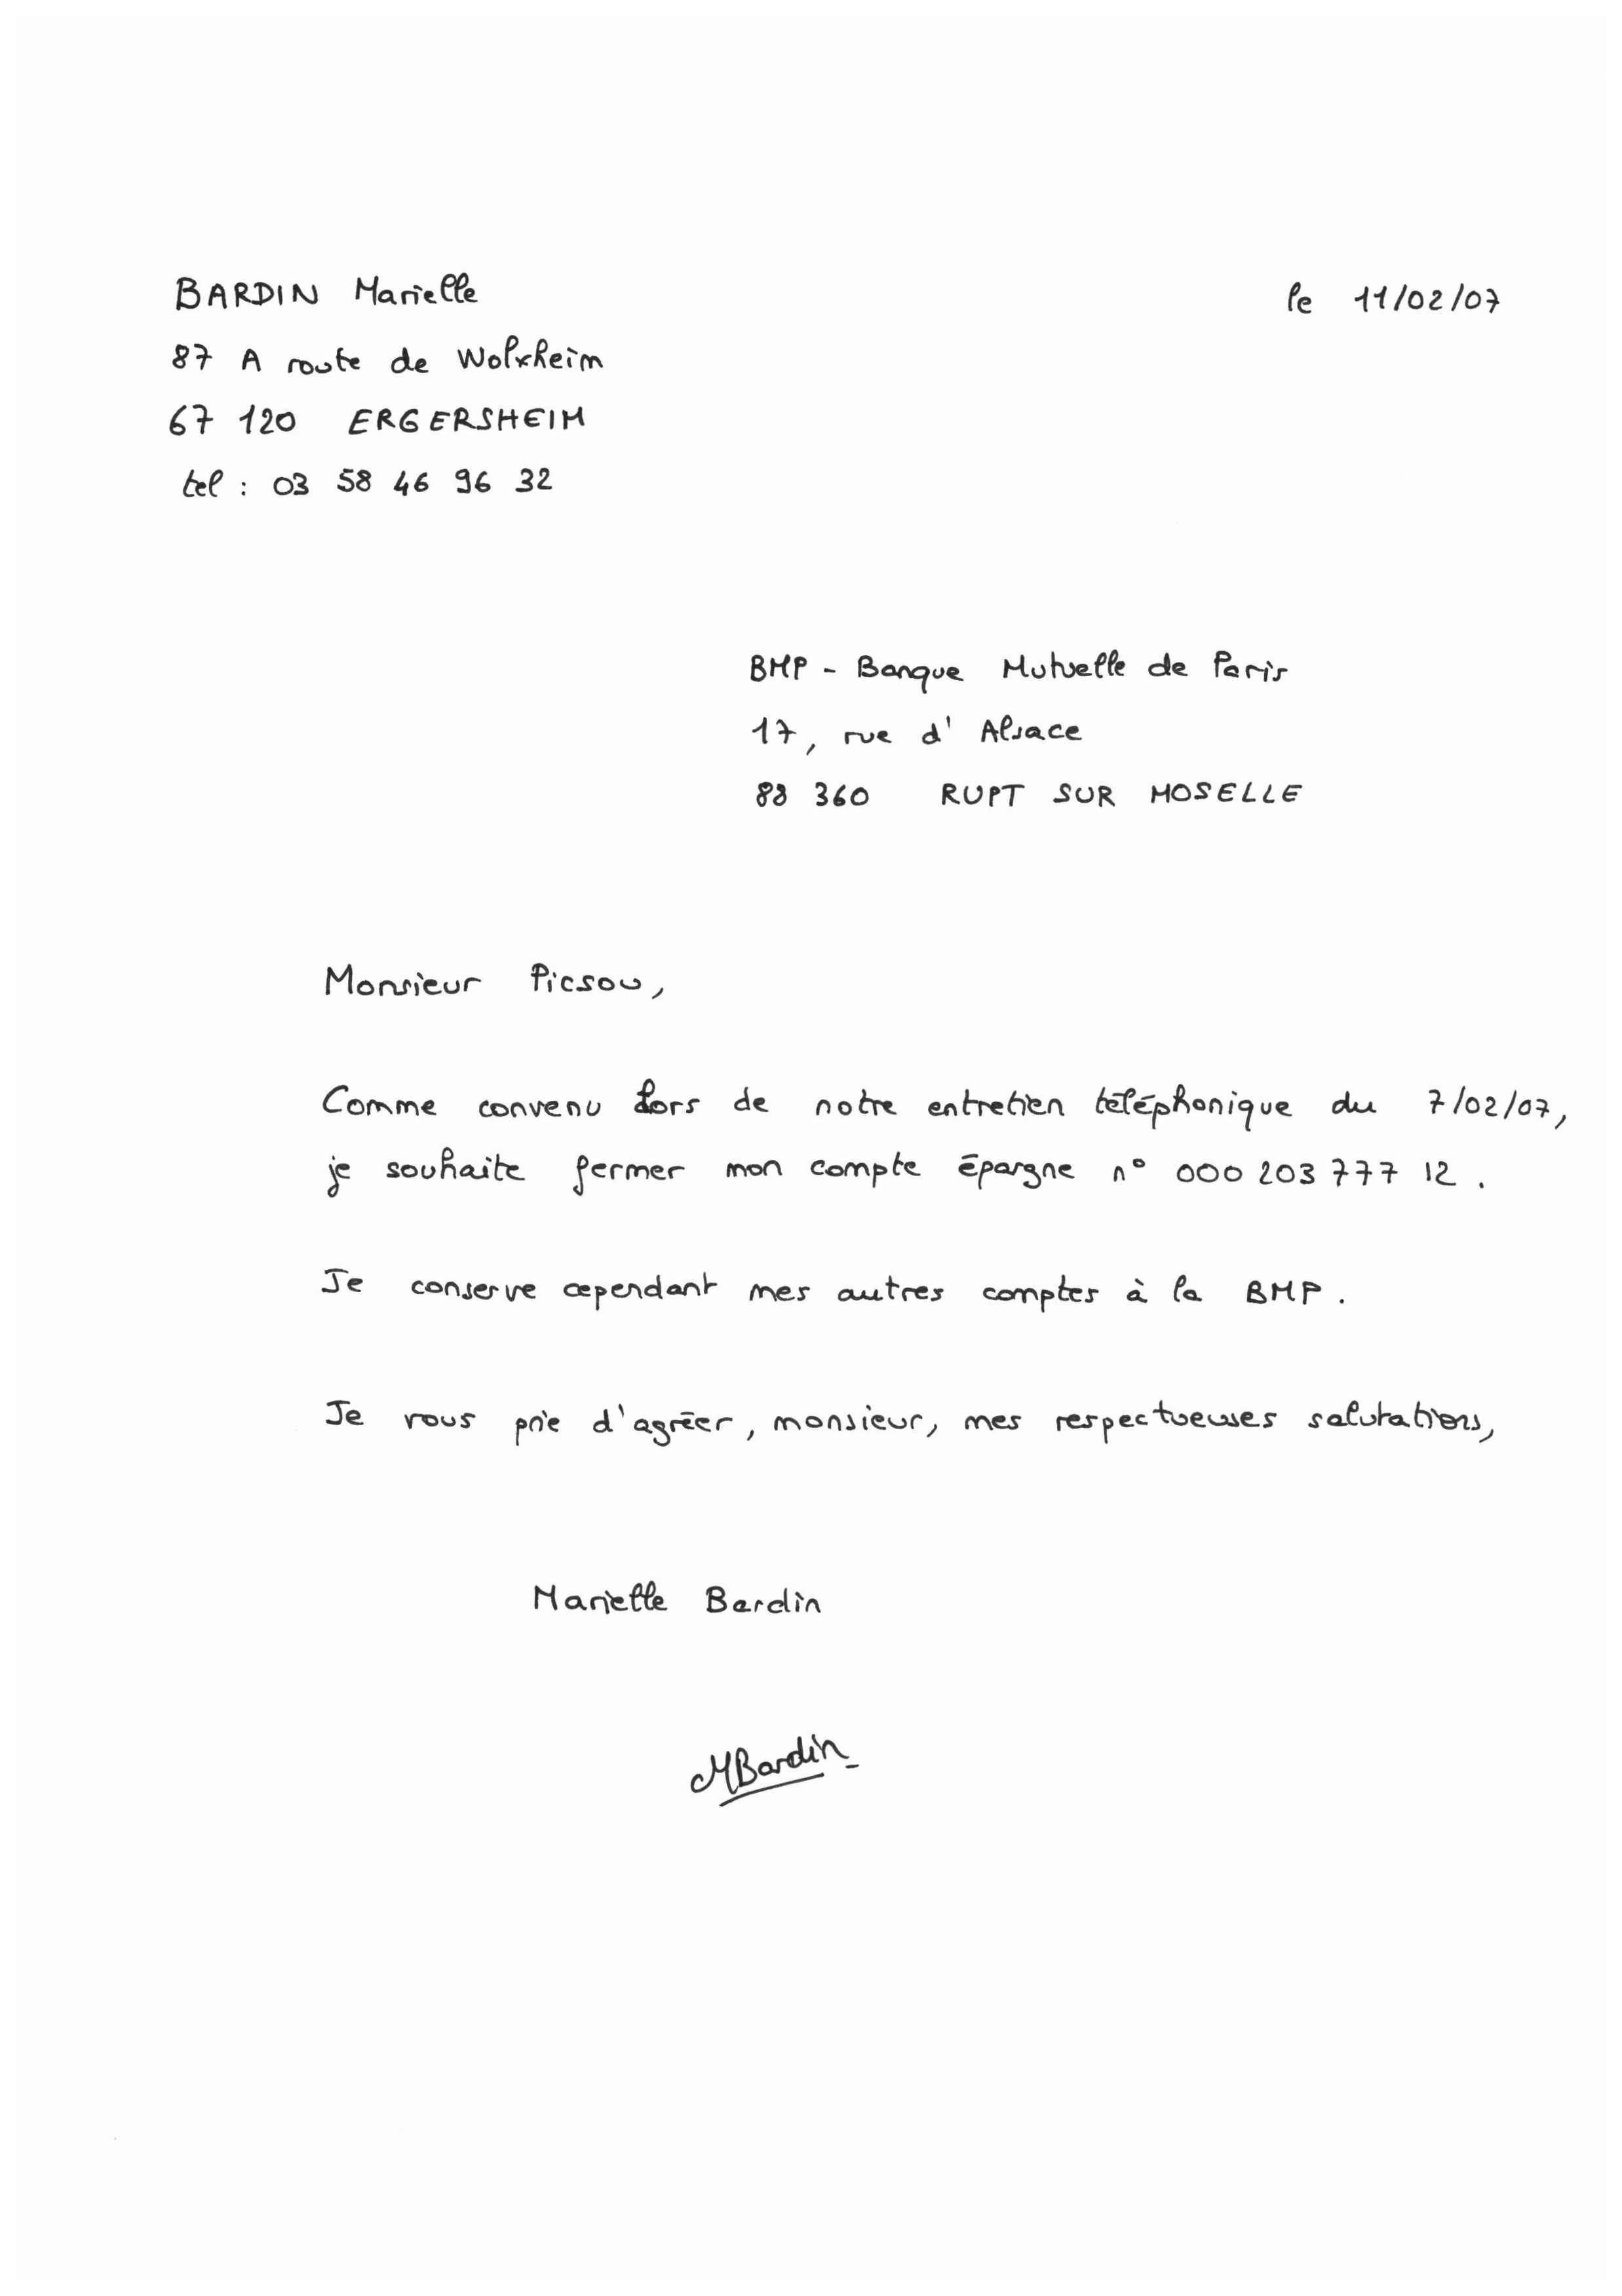 BARDIN Marielle
le 11/02/07
87 A route de Wolxheim
67 120 ERGERSHEIM
tel : 03 58 46 96 32
BMP - Banque Mutuelle de Paris
17, rue d'Alsace
88 360 RUPT SUR MOSELLE
Monsieur Picsou,
Comme convenu lors de notre entretien téléphonique du 7/02/07,
je souhaite fermer mon compte épargne n° 000 203 777 12.
Je conserve cependant mes autres comptes à la BMP.
Je vous prie d'agréer, monsieur, mes respectueuses salutations,
Marielle Bardin
MBardin